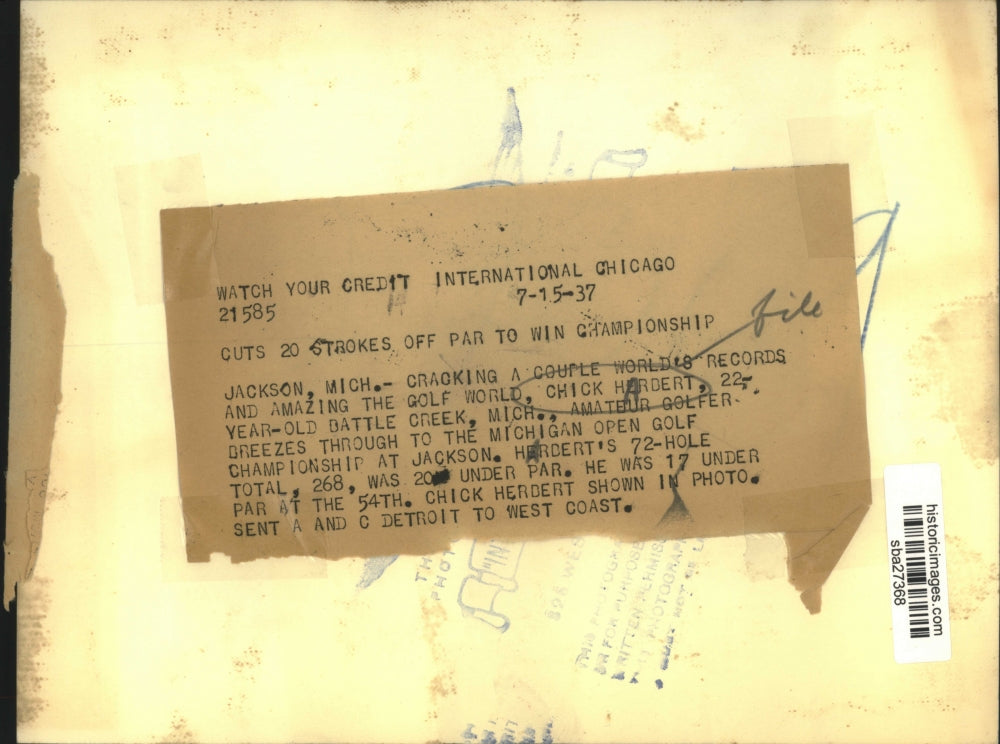 WATCH YOUR CREDIT INTERNATIONAL CHICAGO
21585 7-15-37
CUTS 20 STROKES OFF PAR TO WIN CHAMPIONSHIP
file
JACKSON, MICH.- CRACKING A COUPLE WORLD'S RECORDS
AND AMAZING THE GOLF WORLD, CHICK HERBERT, 22-
A
YEAR-OLD BATTLE CREEK, MICH., AMATEUR GOLFER
BREEZES THROUGH TO THE MICHIGAN OPEN GOLF
CHAMPIONSHIP AT JACKSON. HERBERT'S 72-HOLE
TOTAL, 268, WAS 20 UNDER PAR. HE WAS 17 UNDER
PAR AT THE 54TH. CHICK HERBERT SHOWN IN PHOTO.
SENT A AND C DETROIT TO WEST COAST.
historicimages.com
sba27368